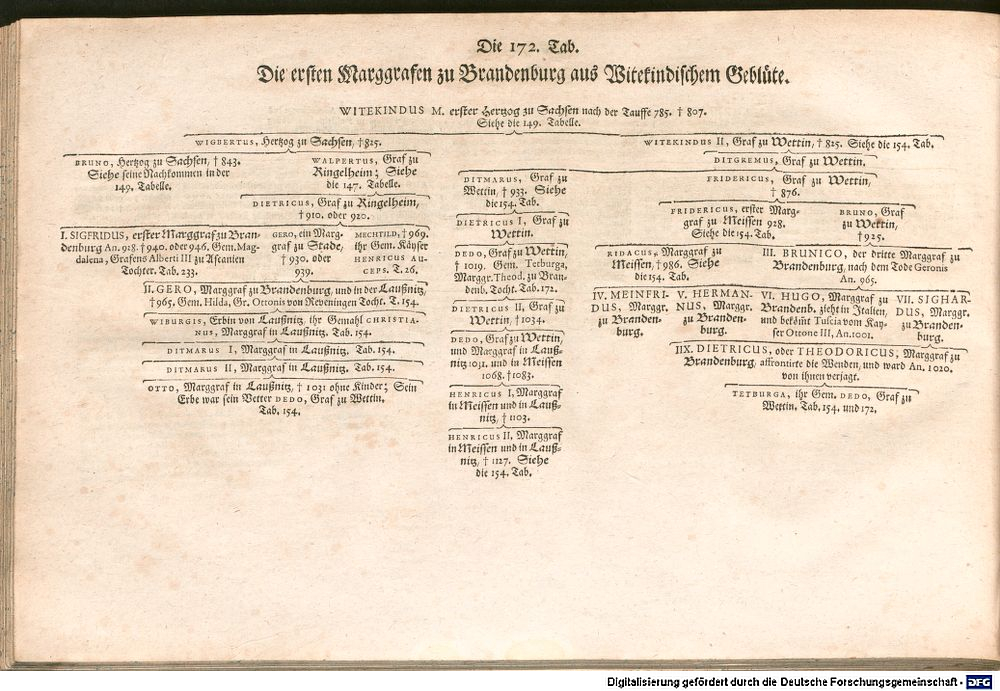 Die 172. Tab.
Die ersten Marggrafen zu Brandenburg aus Witekindischem Geblüte.
WITEKINDUS M. erster Hertzog zu Sachsen nach der Tauffe 785. † 807.
Siehe die 149. Tabelle.
WIGBERTUS, Hertzog zu Sachsen, † 825.
BRUNO, Hertzog zu Sachsen, † 843.
Siehe seine Nachkommen in der
149. Tabelle.
WALPERTUS, Graf zu
Ringelheim; Siehe
die 147. Tabelle.
DIETRICUS, Graf zu Ringelheim,
† 910. oder 920.
I. SIGFRIDUS, erster Marggraf zu Bran-
denburg An. 928. † 940. oder 946. Gem. Mag-
dalena, Grafens Alberti III zu Ascanien
Tochter. Tab. 233.
GERO, ein Marg-
graf zu Stade,
† 930. oder
939.
MECHTILD, † 969.
ihr Gem. Käyser
HENRICUS AU-
CEPS. T. 26.
II. GERO, Marggraf zu Brandenburg, und in der Laußnitz,
† 965, Gem. Hilda, Gr. Ottonis von Reveningen Tocht. T. 154.
WIBURGIS, Erbin von Laußnitz, ihr Gemahl CHRISTIA-
NUS, Marggraf in Laußnitz. Tab. 154.
DITMARUS I, Marggraf in Laußnitz. Tab. 154.
DITMARUS II, Marggraf in Laußnitz. Tab. 154.
OTTO, Marggraf in Laußnitz, † 1031 ohne Kinder; Sein
Erbe war sein Vetter DEDO, Graf zu Wettin.
Tab. 154.
WITEKINDUS II, Graf zu Wettin, † 825. Siehe die 154. Tab.
DITGREMUS, Graf zu Wettin.
DITMARUS, Graf zu
Wettin, † 933. Siehe
die 154. Tab.
DIETRICUS I, Graf zu
Wettin.
DEDO, Graf zu Wettin,
† 1019. Gem. Tetburga,
Marggr. Theod. zu Bran-
denb. Tocht. Tab. 172.
DIETRICUS II, Graf zu
Wettin, † 1034.
DEDO, Graf zu Wettin,
und Marggraf in Lauß-
nitz 1031. und in Meissen
1068. † 1083.
HENRICUS I, Marggraf
in Meissen und in Lauß-
nitz, † 1103.
HENRICUS II, Marggraf
in Meissen und in Lauß-
nitz, † 1127. Siehe
die 154. Tab.
FRIDERICUS, Graf zu Wettin,
† 876.
FRIDERICUS, erster Marg-
graf zu Meissen 928.
Siehe die 154. Tab.
BRUNO, Graf
zu Wettin,
† 925.
RIDACUS, Marggraf zu
Meissen, † 986. Siehe
die 154. Tab.
III. BRUNICO, der dritte Marggraf zu
Brandenburg, nach dem Tode Geronis
An. 965.
IV. MEINFRI-
DUS, Marggr.
zu Branden-
burg.
V. HERMAN-
NUS, Marggr.
zu Branden-
burg.
VI. HUGO, Marggraf zu
Brandenb. zieht in Italien,
und bekömt Tuscia vom Kay-
ser Ottone III, An. 1001.
VII. SIGHAR-
DUS, Marggr.
zu Branden-
burg.
IIX. DIETRICUS, oder THEODORICUS, Marggraf zu
Brandenburg, affrontirte die Wenden, und ward An. 1020.
von ihnen verjagt.
TETBURGA, ihr Gem. DEDO, Graf zu
Wettin, Tab. 154. und 172.
Digitalisierung gefördert durch die Deutsche Forschungsgemeinschaft - DFG